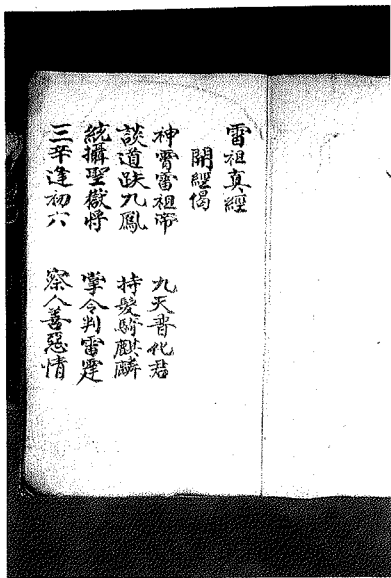 雷祖真經
開經偈
神霄雷祖帝 九天普化君
談道趺九鳳 持髮騎麒麟
統攝聖嶽將 掌令判雷霆
三辛逢初六 察人善惡情